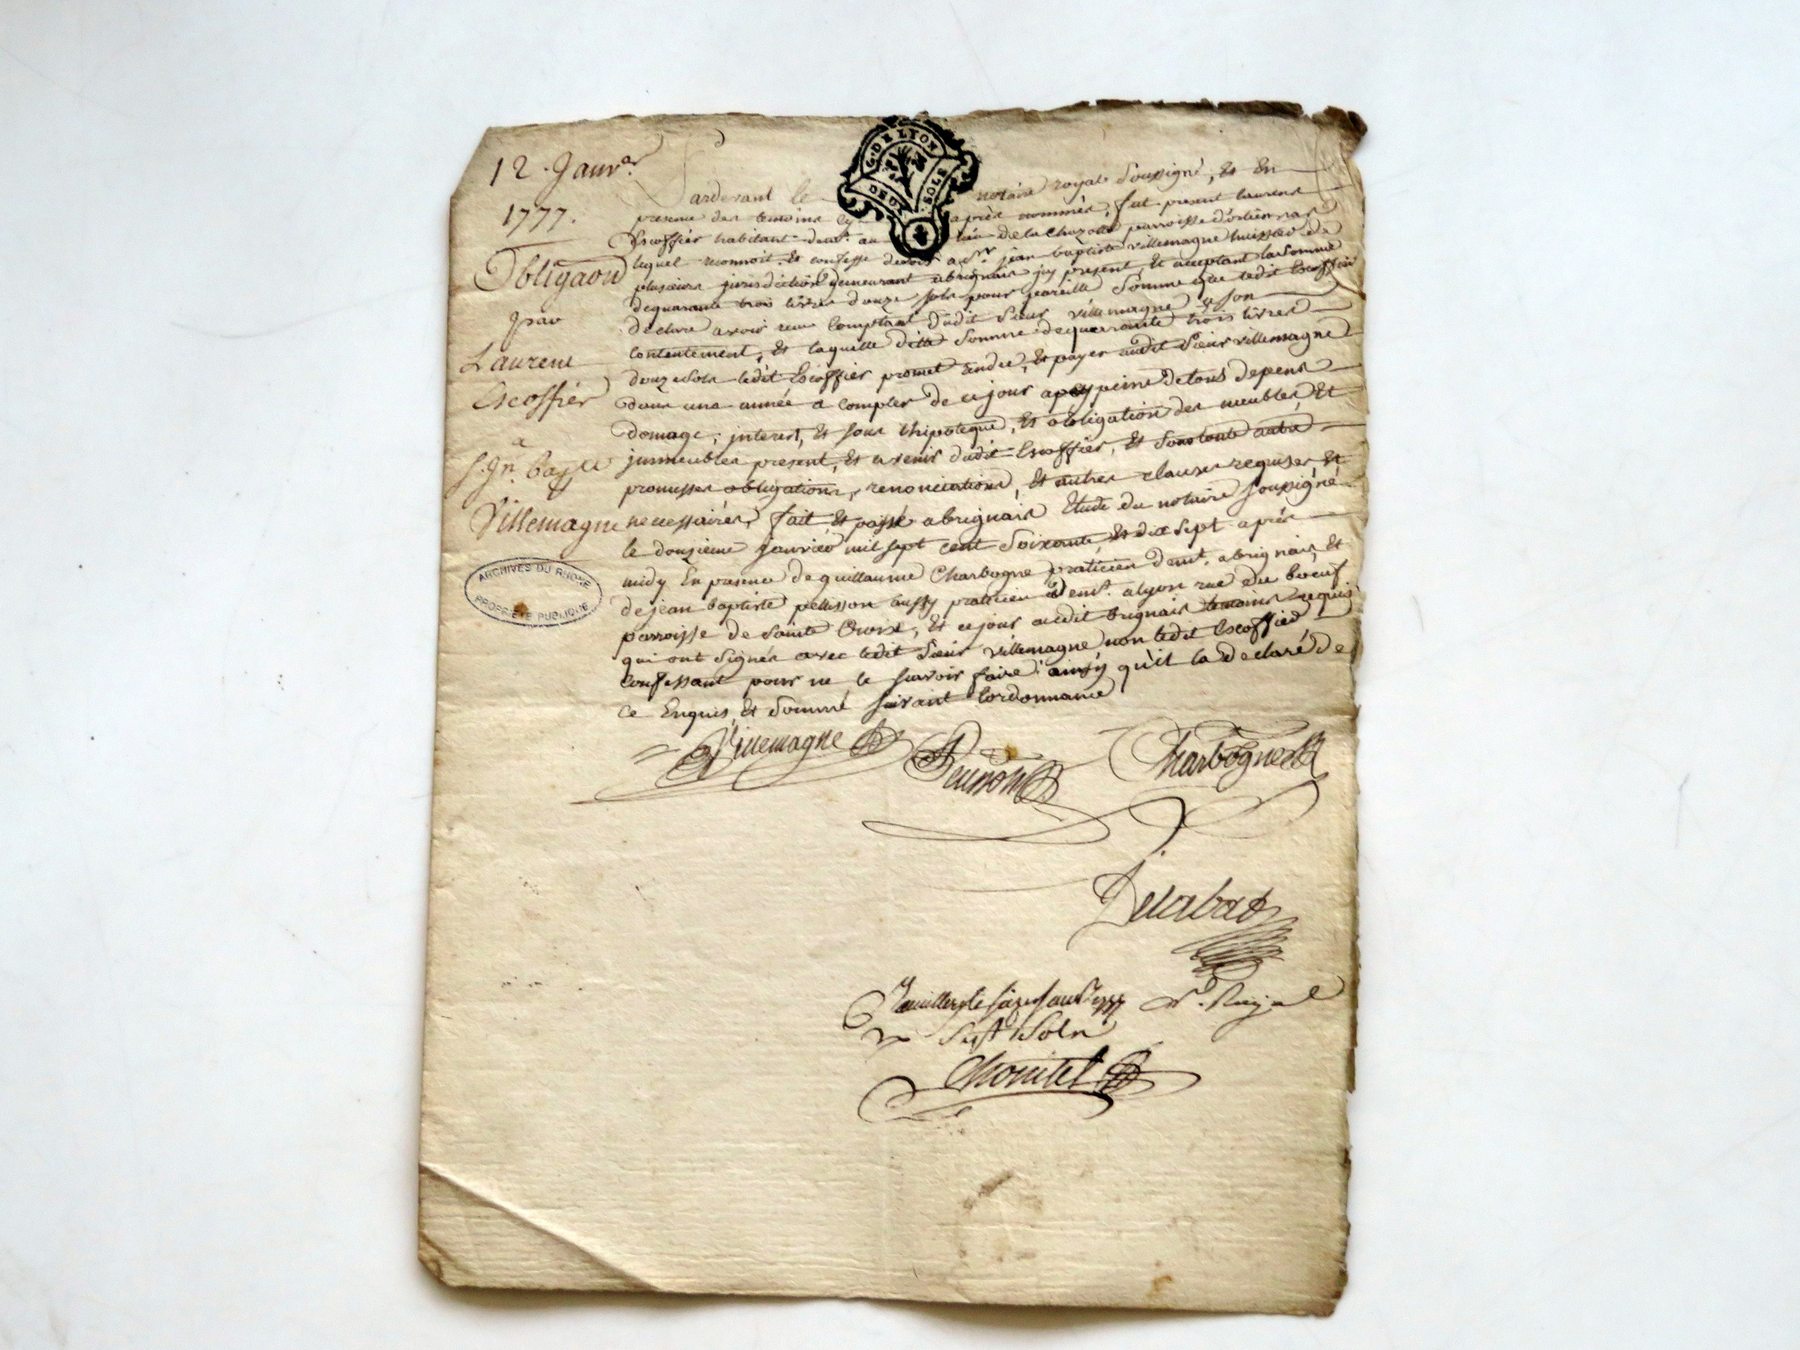 12. Janv.er
1777.
Obligaon
par
Laurent
Escoffier
a
S. Jn. Bapte
Villemagne
G. DE LYON
DEUX SOLS
ARCHIVES DU RHONE
PROPRIÉTÉ PUBLIQUE
Pardevant le notaire royal soussigné, et en
presence des temoins cy après nommés, fut present laurent
Escoffier habitant demt. au lieu de la Chazotte parroisse d'orlienas
lequel reconnoit et confesse devoir a sr. jean baptiste villemagne huissier de
plusieurs jurisdictions demeurant a brignais icy present, et acceptant la somme
de quarante trois livres douze sols pour pareille somme que ledit Escoffier
declare avoir reçu comptant dudit sieur villemagne a son
contentement, et laquelle ditte somme de quarante trois livres
douze sols ledit Escoffier promet rendre, et payer audit sieur villemagne
dans une année a compter de ce jour a peine de tous depens
domage, interest, et sous l'hipoteque, et obligation des meubles, et
immeubles present, et avenir dudit Escoffier, et sous toute autre
promesses obligations, renonciations, et autres clauses requises, et
necessaires, fait et passé a brignais Etude du notaire soussigné
le douzieme janvier mil sept cent soixante et dix sept après
midy En presence de guillaume Charbogne praticien demt. a brignais, et
de jean baptiste pelisson aussy praticien demt. a lyon rue du boeuf
parroisse de sainte Croix, et ce jour audit brignais temoins requis
qui ont signés avec ledit sieur villemagne non ledit Escoffier
confessant pour ne le savoir faire ainsy qu'il la declaré de
ce Enquis, et sommé suivant l'ordonnance
Villemagne
Pelisson
Charbogne
Delabat
nre. Royal
sept sols